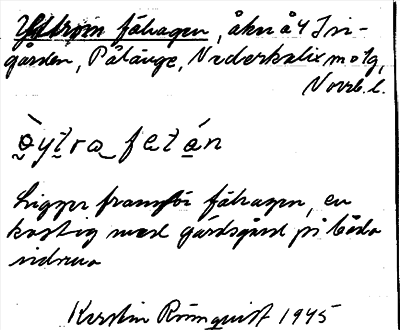 Yttroin fähagen, åker å 4 Iri-
gården, Pålänge, Nederkalix molg,
Norrb. l.
ə̀ytra fetán
Ligger framför fähagen, en
kostig med gärdsgård på båda
sidrna
Kerstin Rönnquist 1945